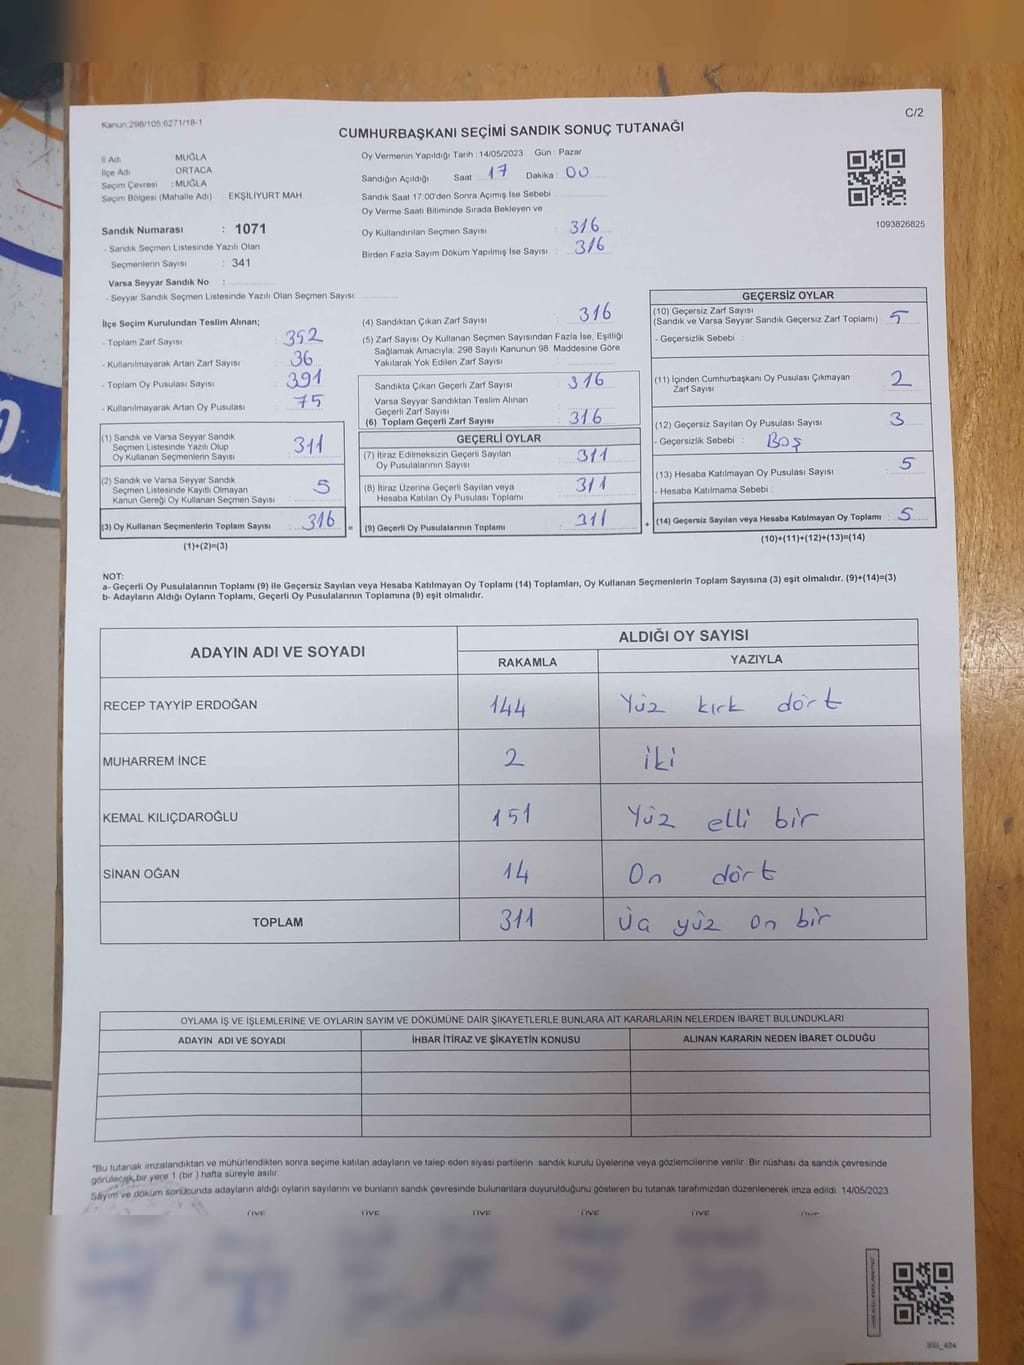 Kanun:298/105,6271/18-1
C/2
CUMHURBAŞKANI SEÇİMİ SANDIK SONUÇ TUTANAĞI
İl Adı MUĞLA
İlçe Adı ORTACA
Seçim Çevresi :MUĞLA
Seçim Bölgesi (Mahalle Adı) EKŞİLİYURT MAH.
Sandık Numarası : 1071
- Sandık Seçmen Listesinde Yazılı Olan
Seçmenlerin Sayısı : 341
Varsa Seyyar Sandık No :
- Seyyar Sandık Seçmen Listesinde Yazılı Olan Seçmen Sayısı:
Oy Vermenin Yapıldığı Tarih : 14/05/2023 Gün : Pazar
Sandığın Açıldığı Saat 17 Dakika 00
Sandık Saat 17:00'den Sonra Açımış İse Sebebi :
Oy Verme Saati Bitiminde Sırada Bekleyen ve
Oy Kullandırılan Seçmen Sayısı : 316
Birden Fazla Sayım Döküm Yapılmış İse Sayısı : 316
1093826825
İlçe Seçim Kurulundan Teslim Alınan;
- Toplam Zarf Sayısı : 352
- Kullanılmayarak Artan Zarf Sayısı : 36
- Toplam Oy Pusulası Sayısı : 391
- Kullanılmayarak Artan Oy Pusulası : 75
(1) Sandık ve Varsa Seyyar Sandık
Seçmen Listesinde Yazılı Olup
Oy Kullanan Seçmenlerin Sayısı : 311
(2) Sandık ve Varsa Seyyar Sandık
Seçmen Listesinde Kayıtlı Olmayan
Kanun Gereği Oy Kullanan Seçmen Sayısı : 5
(3) Oy Kullanan Seçmenlerin Toplam Sayısı : 316
(1)+(2)=(3)
(4) Sandıktan Çıkan Zarf Sayısı : 316
(5) Zarf Sayısı Oy Kullanan Seçmen Sayısından Fazla İse, Eşitliği
Sağlamak Amacıyla; 298 Sayılı Kanunun 98. Maddesine Göre
Yakılarak Yok Edilen Zarf Sayısı :
Sandıkta Çıkan Geçerli Zarf Sayısı : 316
Varsa Seyyar Sandıktan Teslim Alınan
Geçerli Zarf Sayısı :
(6) Toplam Geçerli Zarf Sayısı : 316
GEÇERLİ OYLAR
(7) İtiraz Edilmeksizin Geçerli Sayılan
Oy Pusulalarının Sayısı : 311
(8) İtiraz Üzerine Geçerli Sayılan veya
Hesaba Katılan Oy Pusulası Toplamı : 311
= (9) Geçerli Oy Pusulalarının Toplamı : 311
GEÇERSİZ OYLAR
(10) Geçersiz Zarf Sayısı
(Sandık ve Varsa Seyyar Sandık Geçersiz Zarf Toplamı) : 5
- Geçersizlik Sebebi :
(11) İçinden Cumhurbaşkanı Oy Pusulası Çıkmayan
Zarf Sayısı : 2
(12) Geçersiz Sayılan Oy Pusulası Sayısı : 3
- Geçersizlik Sebebi : Boş
(13) Hesaba Katılmayan Oy Pusulası Sayısı : 5
- Hesaba Katılmama Sebebi :
+ (14) Geçersiz Sayılan veya Hesaba Katılmayan Oy Toplamı : 5
(10)+(11)+(12)+(13)=(14)
NOT:
a- Geçerli Oy Pusulalarının Toplamı (9) ile Geçersiz Sayılan veya Hesaba Katılmayan Oy Toplamı (14) Toplamları, Oy Kullanan Seçmenlerin Toplam Sayısına (3) eşit olmalıdır. (9)+(14)=(3)
b- Adayların Aldığı Oyların Toplamı, Geçerli Oy Pusulalarının Toplamına (9) eşit olmalıdır.
ADAYIN ADI VE SOYADI ALDIĞI OY SAYISI
RAKAMLA YAZIYLA
RECEP TAYYİP ERDOĞAN 144 Yüz kırk dört
MUHARREM İNCE 2 iki
KEMAL KILIÇDAROĞLU 151 Yüz elli bir
SİNAN OĞAN 14 On dört
TOPLAM 311 Üç yüz on bir
OYLAMA İŞ VE İŞLEMLERİNE VE OYLARIN SAYIM VE DÖKÜMÜNE DAİR ŞİKAYETLERLE BUNLARA AİT KARARLARIN NELERDEN İBARET BULUNDUKLARI
ADAYIN ADI VE SOYADI İHBAR İTİRAZ VE ŞİKAYETİN KONUSU ALINAN KARARIN NEDEN İBARET OLDUĞU
*Bu tutanak imzalandıktan ve mühürlendikten sonra seçime katılan adayların ve talep eden siyasi partilerin sandık kurulu üyelerine veya gözlemcilerine verilir. Bir nüshası da sandık çevresinde
görülecek bir yere 1 (bir ) hafta süreyle asılır.
Sayım ve döküm sonucunda adayların aldığı oyların sayılarını ve bunların sandık çevresinde bulunanlara duyurulduğunu gösteren bu tutanak tarafımızdan düzenlenerek imza edildi. 14/05/2023
ÜYE ÜYE ÜYE ÜYE ÜYE ÜYE
SSI_404